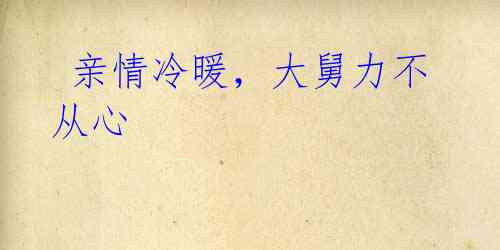 亲情冷暖，大舅力不
从心